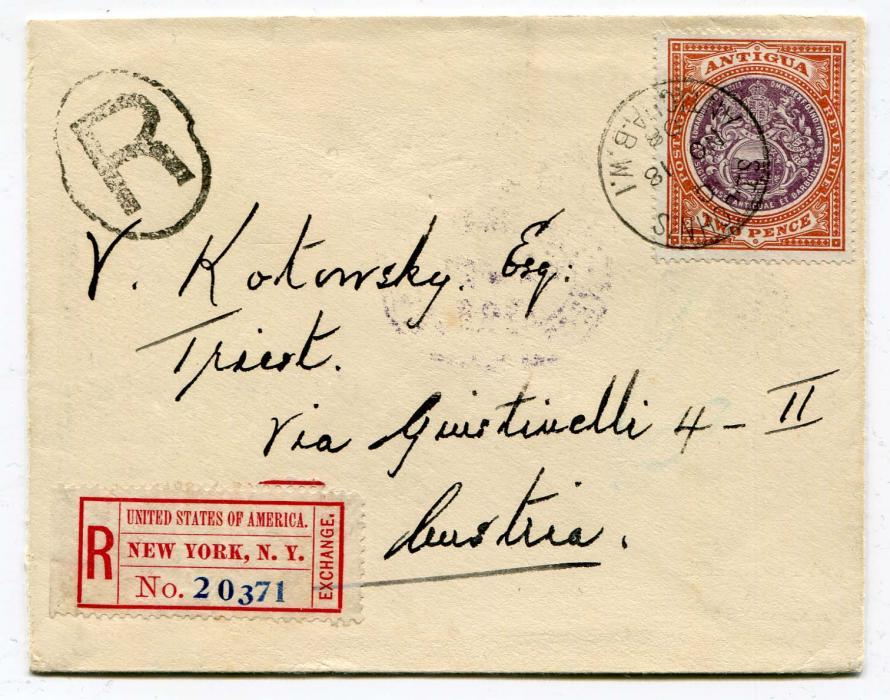 R
ANTIGUA
POSTAGE
REVENUE
ANTIGUAE ET BARBUDA
TWO PENCE
A.B.W.I
V. Kotowsky. Esq:
Triest.
Via Guistinelli 4 - II
Austria.
R
UNITED STATES OF AMERICA.
NEW YORK, N. Y.
No. 20371
EXCHANGE.